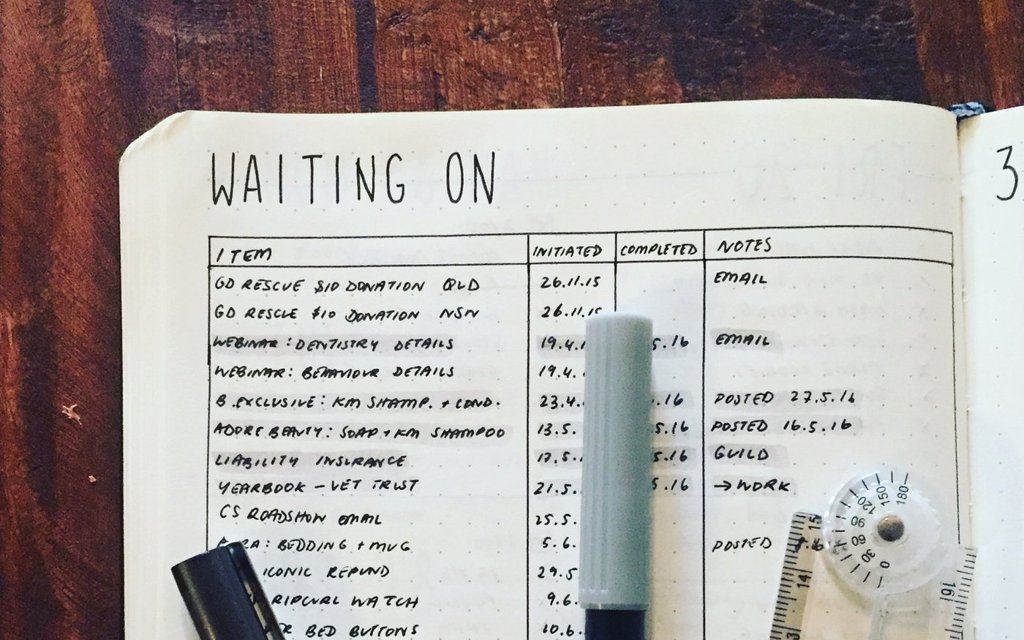 WAITING ON
3
ITEM INITIATED COMPLETED NOTES
GD RESCUE $10 DONATION QLD 26.11.15 EMAIL
GD RESCUE $10 DONATION NSW 26.11.15
WEBINAR: DENTISTRY DETAILS 19.4. 5.16 EMAIL
WEBINAR: BEHAVIOUR DETAILS 19.4.
B.EXCLUSIVE: KM SHAMP. + COND. 23.4. .16 POSTED 27.5.16
ADORE BEAUTY: SOAP + KM SHAMPOO 13.5. 5.16 POSTED 16.5.16
LIABILITY INSURANCE 17.5. 5.16 GUILD
YEARBOOK - VET TRUST 21.5. 5.16 → WORK
CS ROADSHOW EMAIL 25.5.
BEDDING + MUG 5.6. POSTED
ICONIC REFUND 29.5
RIPCURL WATCH 9.6.
BED BUTTONS 10.6.
180 150 120 90 60 30 0
15 14 13
16